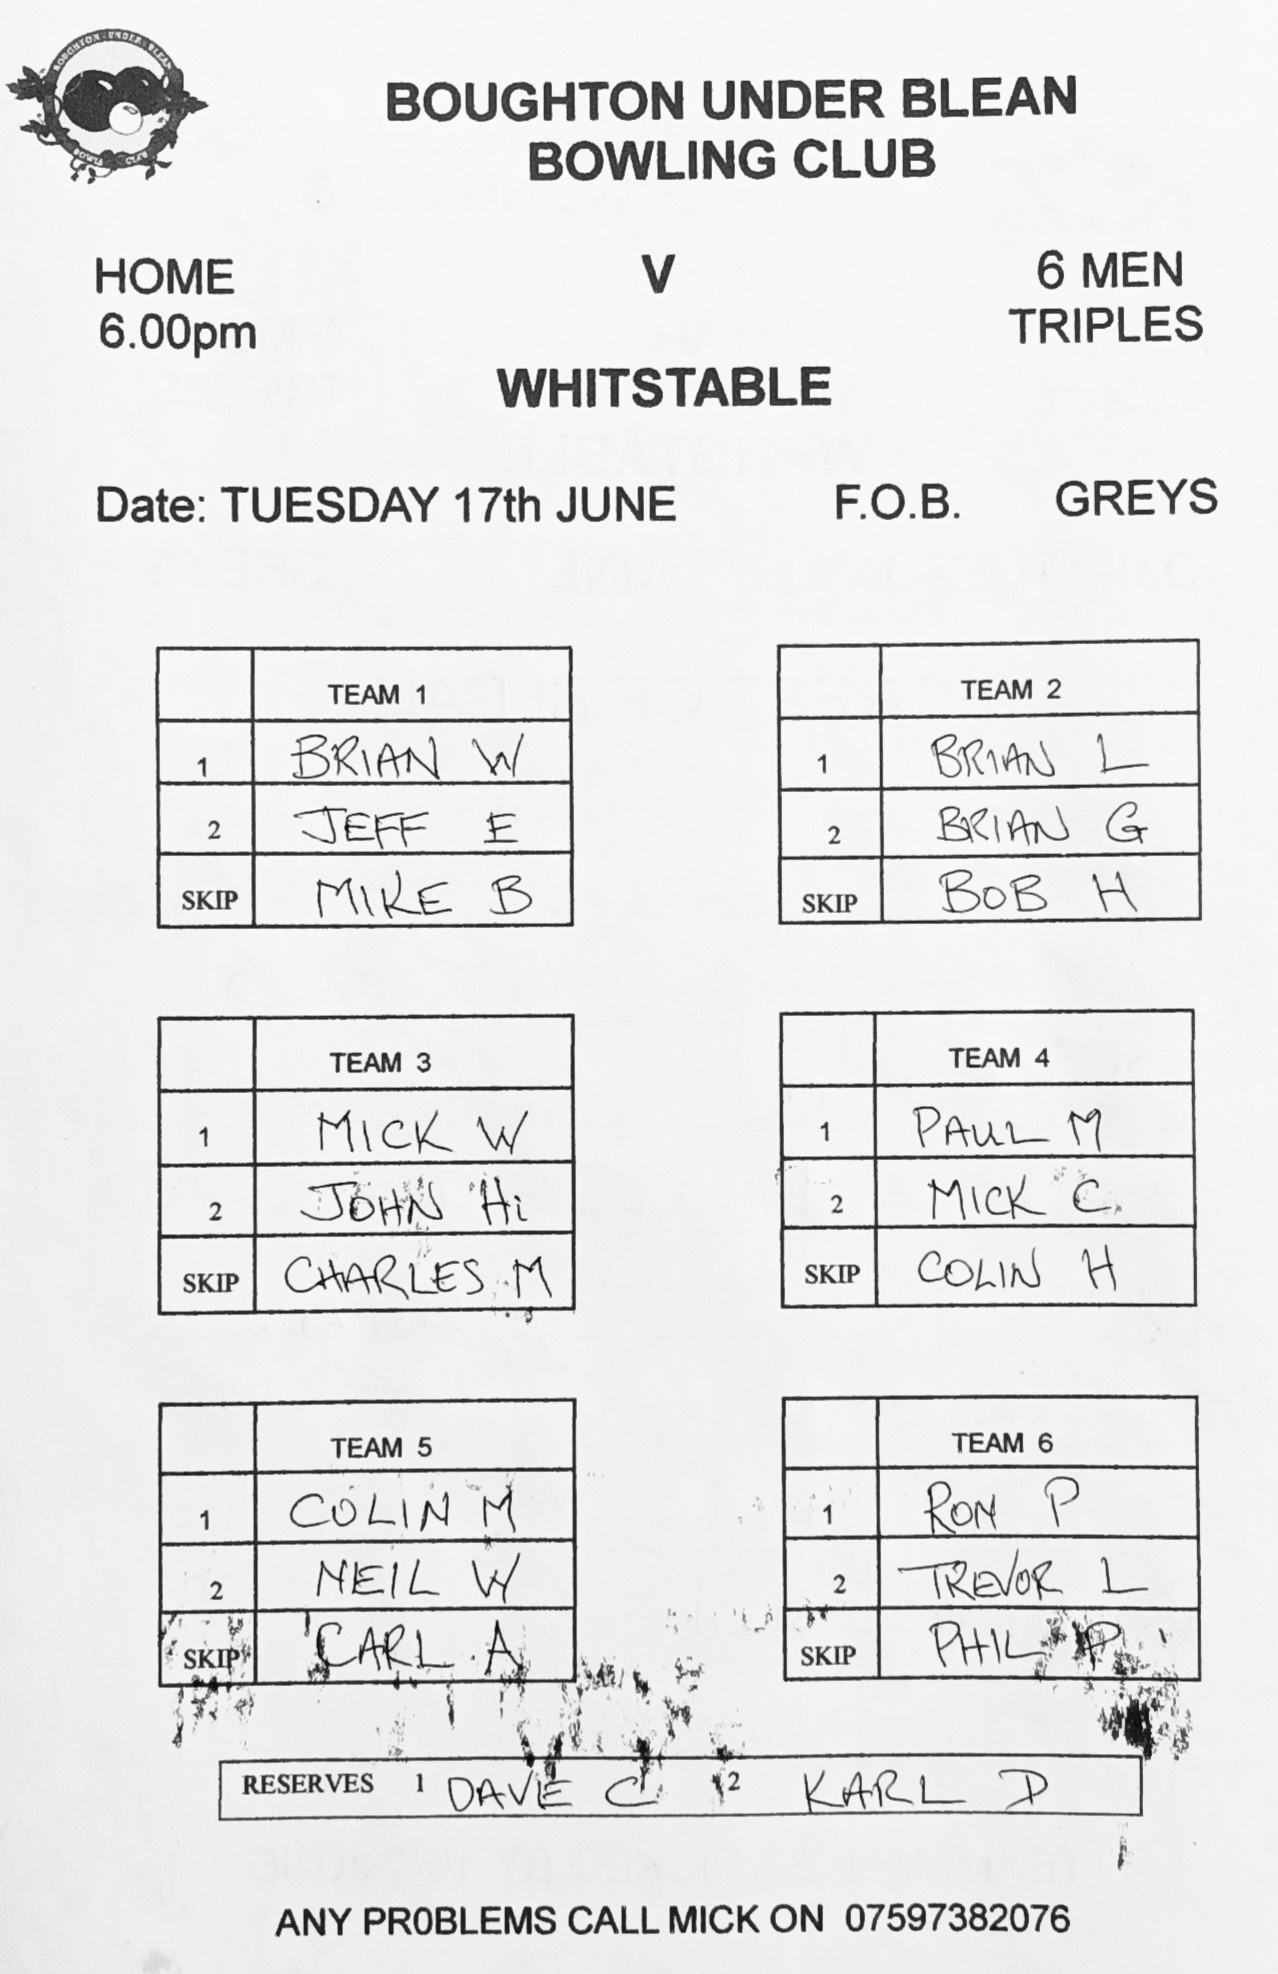 BOUGHTON UNDER BLEAN
BOWLS CLUB
BOUGHTON UNDER BLEAN
BOWLING CLUB
HOME V 6 MEN
6.00pm TRIPLES
WHITSTABLE
Date: TUESDAY 17th JUNE F.O.B. GREYS
TEAM 1
1 BRIAN W
2 JEFF E
SKIP MIKE B
TEAM 2
1 BRIAN L
2 BRIAN G
SKIP BOB H
TEAM 3
1 MICK W
2 JOHN Hi
SKIP CHARLES M
TEAM 4
1 PAUL M
2 MICK C
SKIP COLIN H
TEAM 5
1 COLIN M
2 NEIL W
SKIP CARL A
TEAM 6
1 RON P
2 TREVOR L
SKIP PHIL P
RESERVES 1 DAVE C 2 KARL D
ANY PROBLEMS CALL MICK ON 07597382076